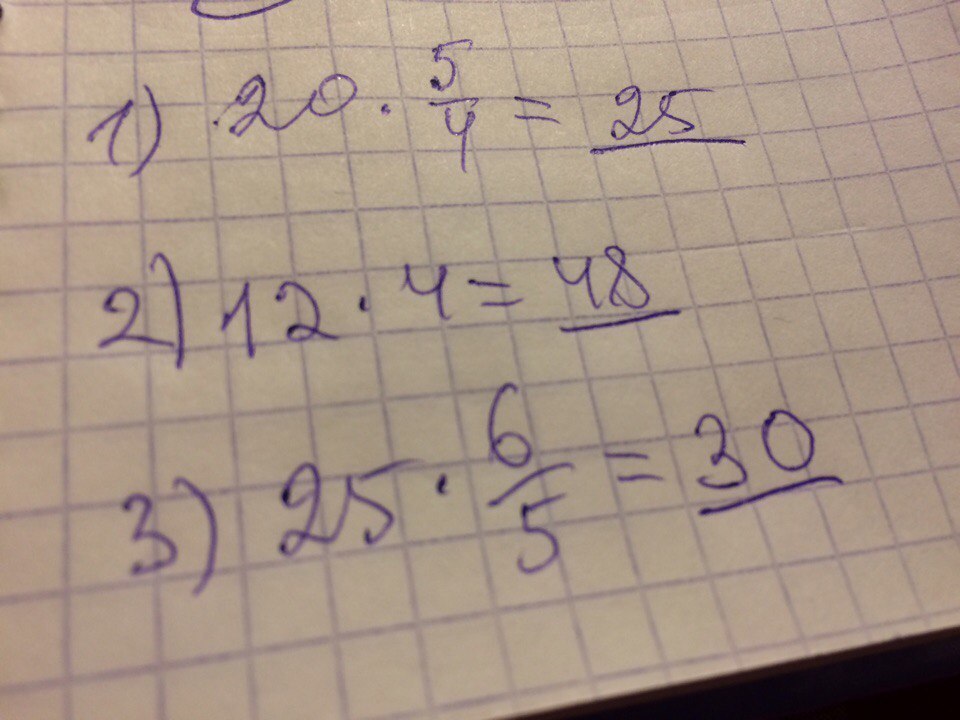 1) 20 · 5/4 = 25
2) 12 · 4 = 48
3) 25 · 6/5 = 30